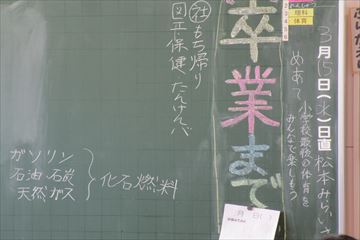 3月15日(水)日直 松本みらいさ
めあて 小学校最後の体育を
みんなで楽しもう
理科
体育
卒業まで
月 日( )
社 もち帰り
図工 保健 たんけんバ
ガソリン
石油 石炭
天然ガス
化石燃料